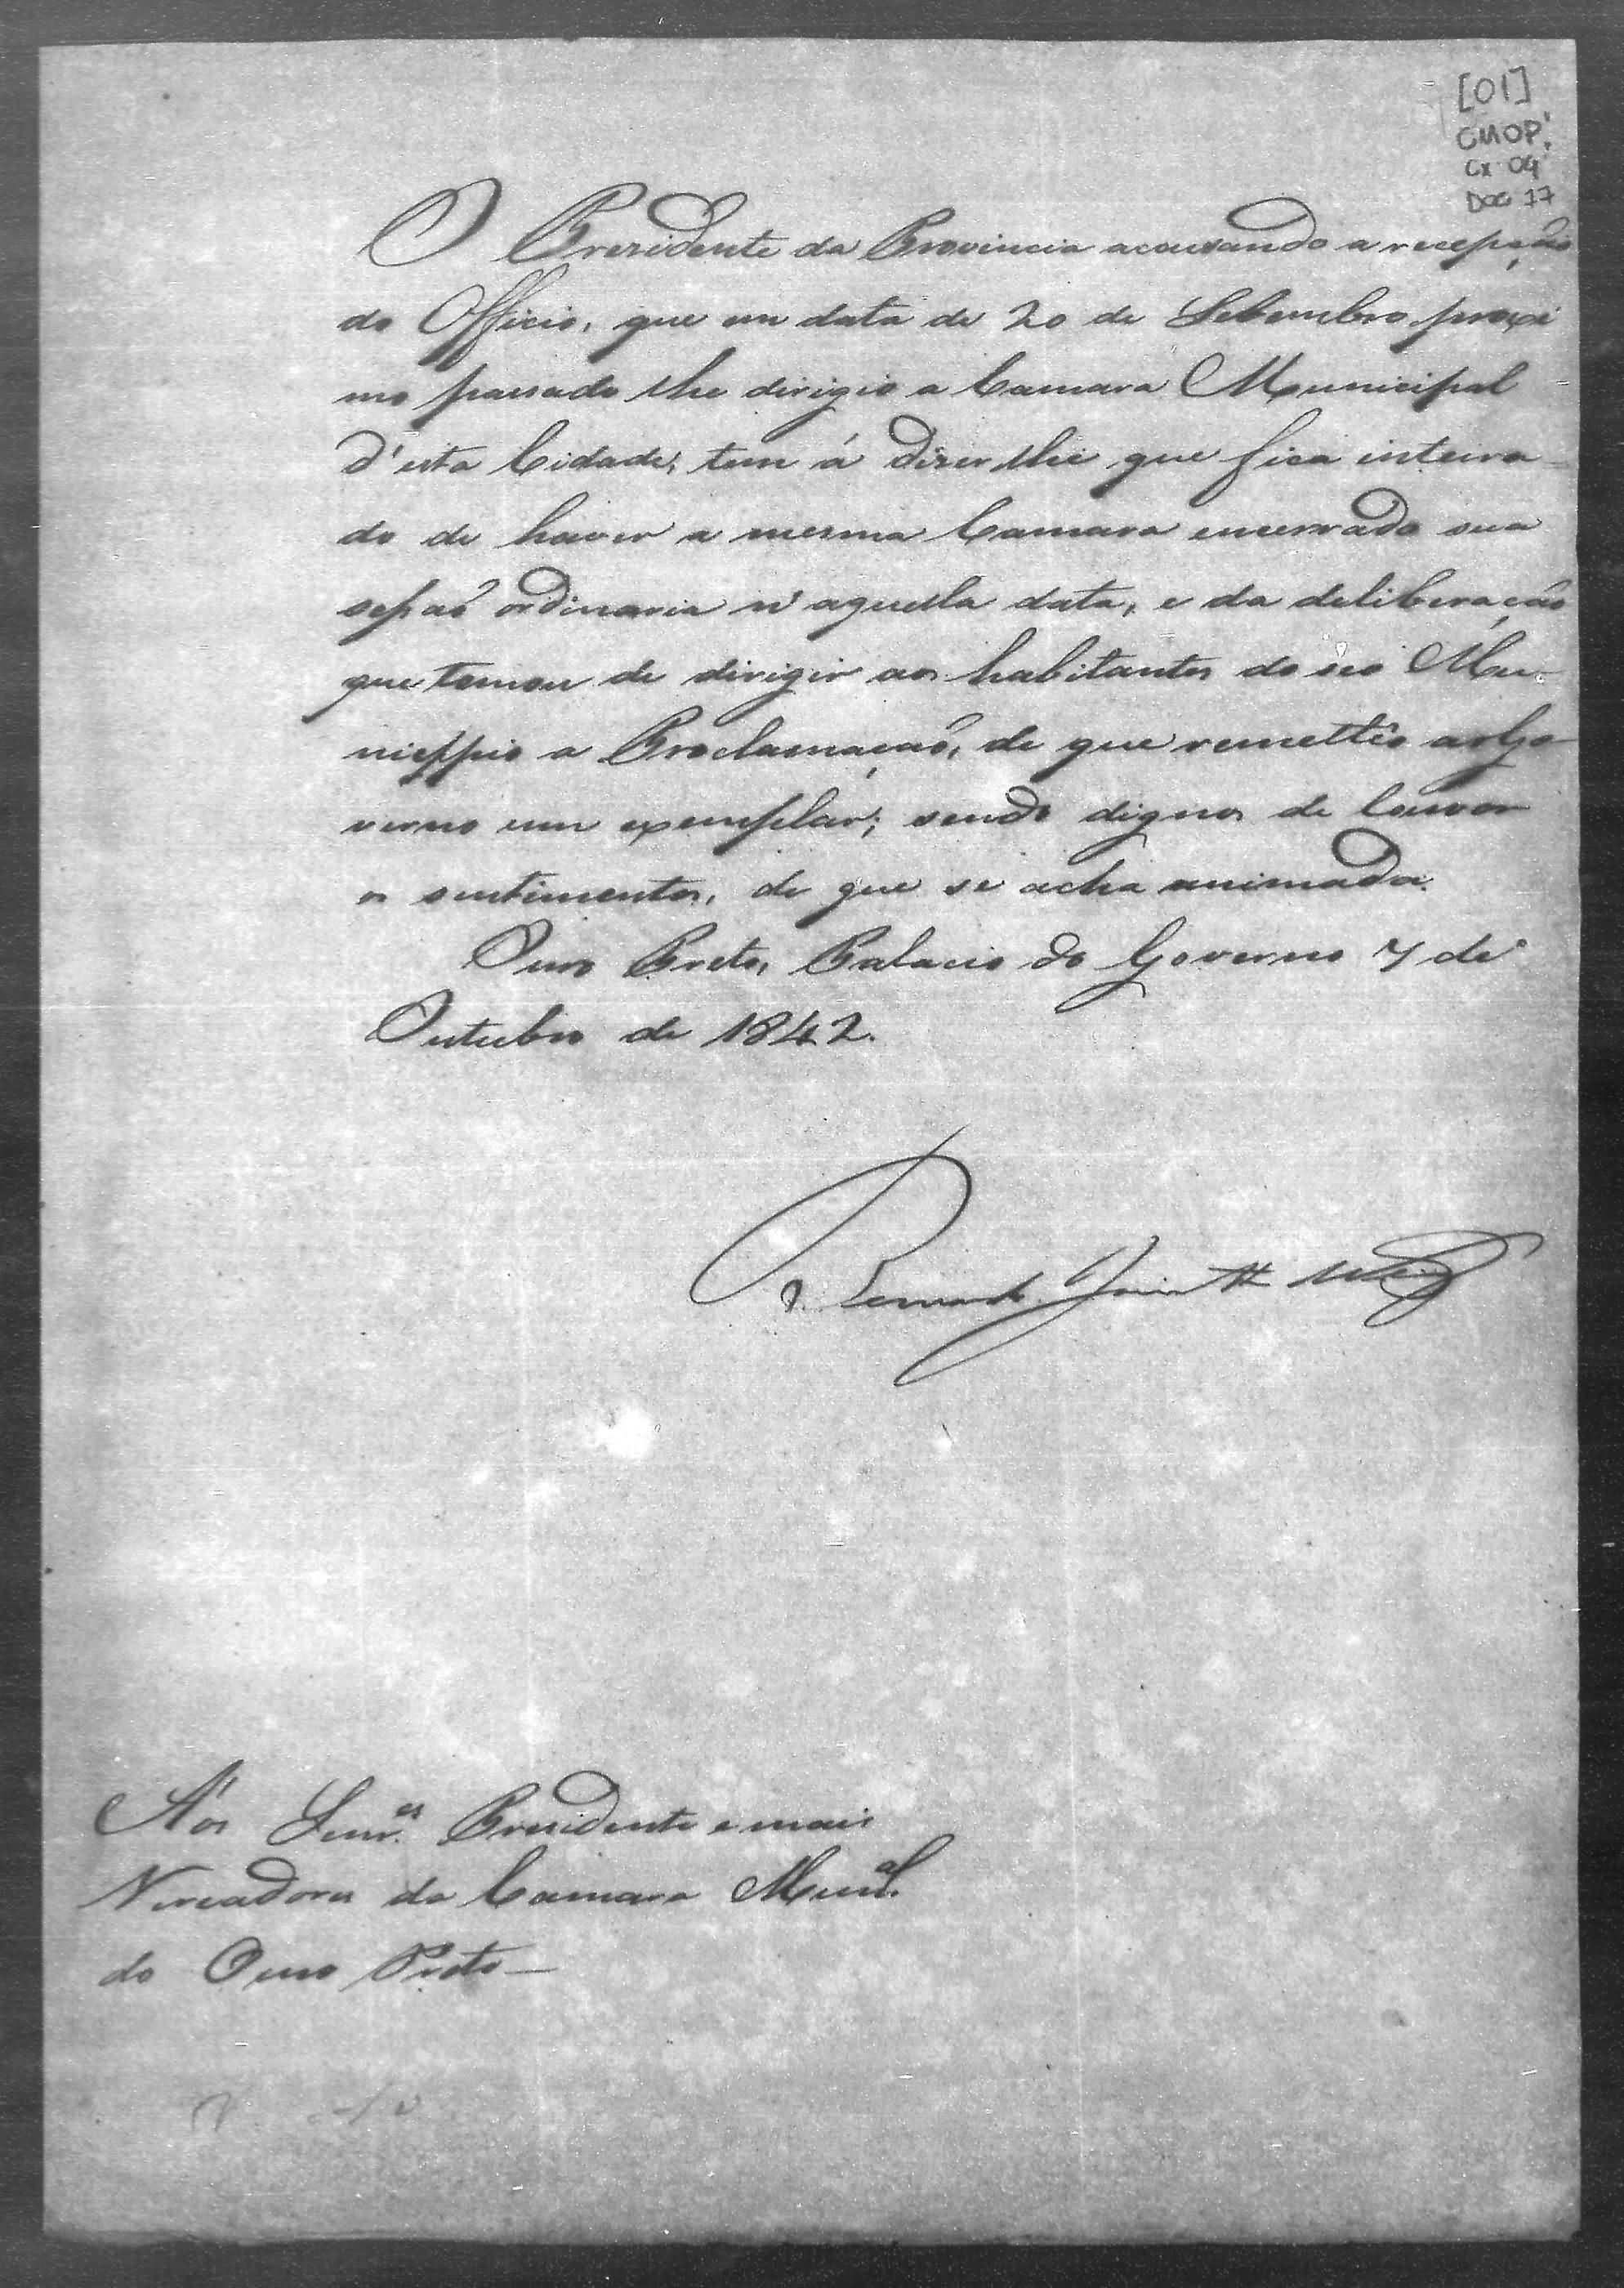 [01]
CMOP.
Cx 04
DOC 17
O Prezidente da Provincia acousando a recepção
do Officio, que em data de 20 de Setembro proxi
mo passado lhe dirigio a Camara Municipal
d'esta Cidade, tem á dizer-lhe que fica inteira-
do de haver a mesma Camara encerrado sua
sessaõ ordinaria n'aquella data, e da deliberação
que tomou de dirigir aos habitantes do seo Mu-
nicippio a Proclamaçaõ, de que remettêo ao Go-
verno um exemplar; sendo dignos de louvor
os sentimentos, de que se acha animada.
Ouro Preto, Palacio do Governo 7 de
Outubro de 1842.
Bernardo
Aos Senr.es Presidente e mais
Vereadores da Camara Mun.al
do Ouro Preto—